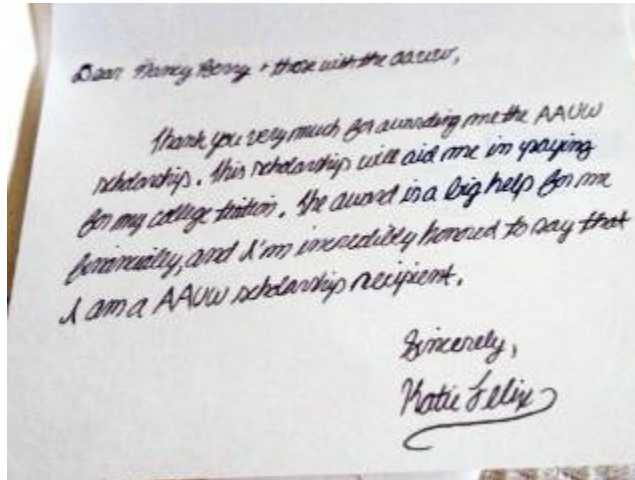 Dear Nancy Berry + those with the aauw,
Thank you very much for awarding me the AAUW
scholarship. This scholarship will aid me in paying
for my college tuition. The award is a big help for me
financially, and I'm incredibly honored to say that
I am a AAUW scholarship recipient.
Sincerely,
Katie Felix